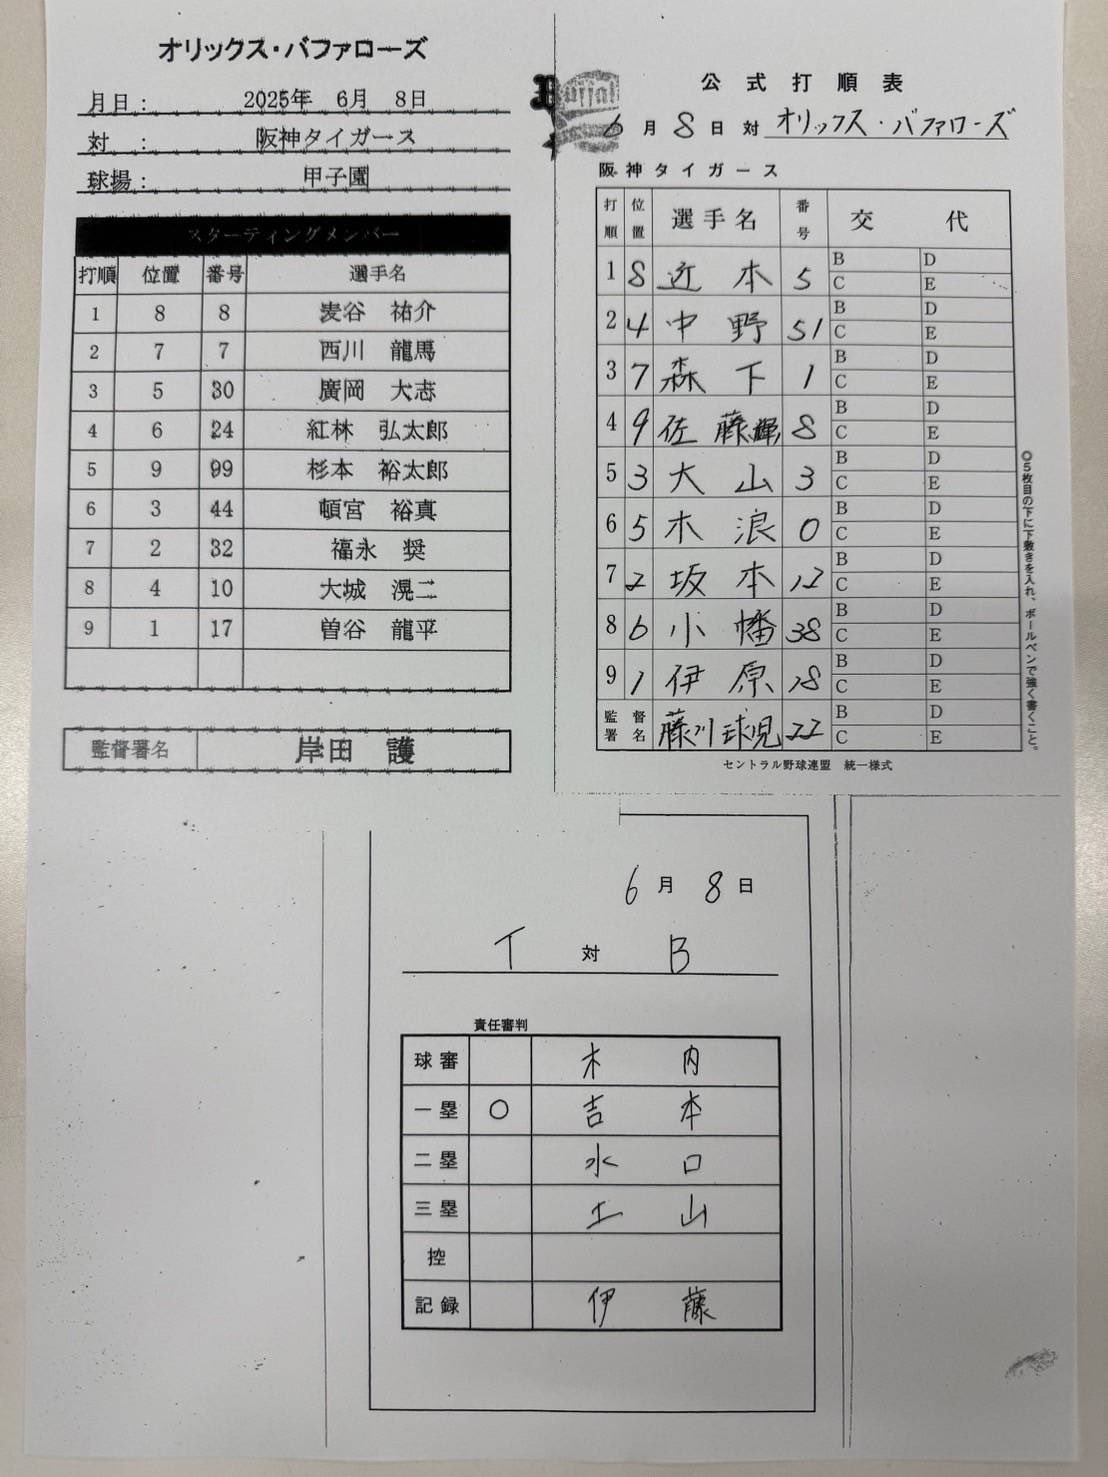 オリックス・バファローズ
月日： 2025年 6月 8日
対 ： 阪神タイガース
球場： 甲子園
スターティングメンバー
打順 位置 番号 選手名
1 8 8 麦谷 祐介
2 7 7 西川 龍馬
3 5 30 廣岡 大志
4 6 24 紅林 弘太郎
5 9 99 杉本 裕太郎
6 3 44 頓宮 裕真
7 2 32 福永 奨
8 4 10 大城 滉二
9 1 17 曽谷 龍平
監督署名 岸田 護
公式打順表
6月8日対 オリックス・バファローズ
阪神タイガース
打順 位置 選手名 番号 交代
1 8 近本 5 B D
C E
2 4 中野 51 B D
C E
3 7 森下 1 B D
C E
4 9 佐藤輝 8 B D
C E
5 3 大山 3 B D
C E
6 5 木浪 0 B D
C E
7 2 坂本 12 B D
C E
8 6 小幡 38 B D
C E
9 1 伊原 18 B D
C E
監督署名 藤川球児 22 B D
C E
◎5枚目の下に下敷きを入れ、ボールペンで強く書くこと。
セントラル野球連盟 統一様式
6月8日
T 対 B
責任審判
球審 木内
一塁 ○ 吉本
二塁 水口
三塁 土山
控
記録 伊藤